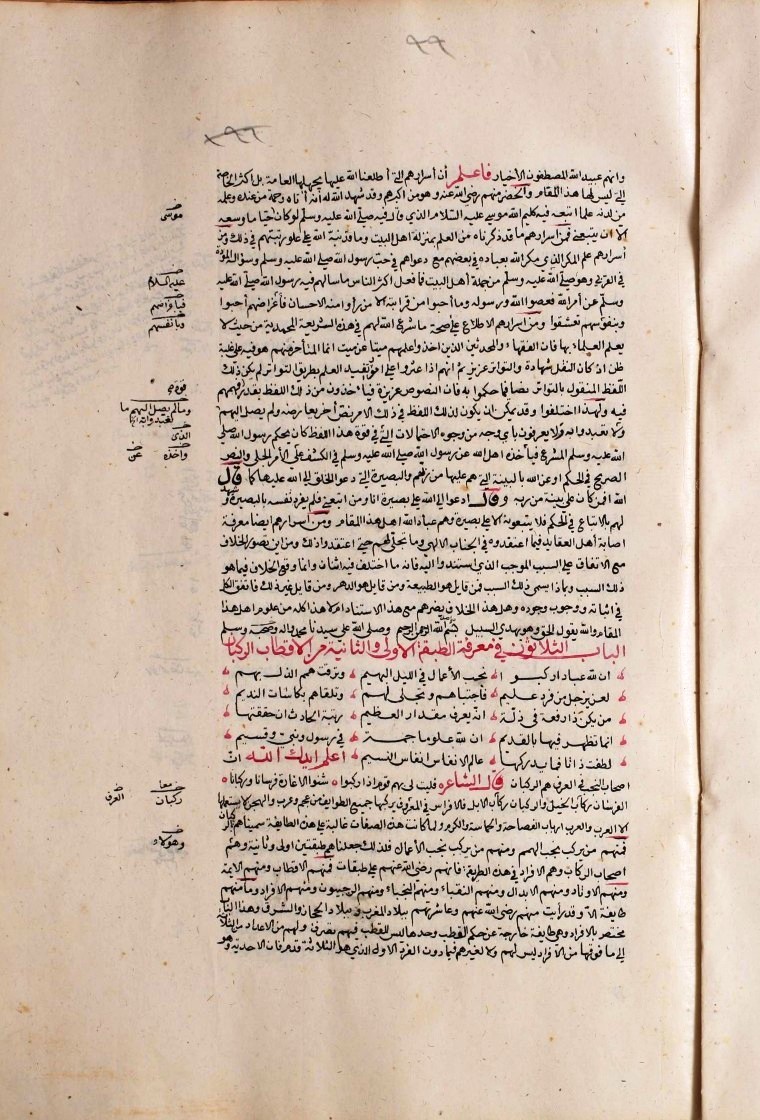 ٩٩
٢٩٦
وانهم عبيد الله المصطفون الأخيار فاعلم أن أسرارهم التي أطلعنا الله عليها يجهلها العامة بل أكثر الخاصة
التي ليس لها هذا المقام والخضر منهم رضي الله عنه وهو من أكبرهم وقد شهد الله له أنه أتاه رحمة من عنده وعلمه
من لدنه علما اتبعه فيه كليم الله موسى عليه السلام الذي قال فيه صلى الله عليه وسلم لو كان موسى حيا ما وسعه
الا ان يتبعني فمن اسرارهم ما قد ذكرناه من العلم بمنزلة اهل البيت وما قد نبه الله على علو رتبتهم في ذلك ومن
أسرارهم علم المكر الذي مكر الله بعباده في بعضهم مع دعواهم في حب رسول الله صلى الله عليه وسلم وسؤاله المودة
في القربى وهو صلى الله عليه وسلم من جملة أهل البيت فما فعل اكثر الناس ما سالهم فيه رسول الله صلى الله عليه
وسلم عن أمر الله فعصوا الله ورسوله وما أحبوا من قرابته الا من رأوا منه الاحسان فأغراضهم أحبوا
وبنفوسهم تعشقوا ومن اسرارهم الاطلاع على صحة ما شرع الله لهم في هذه الشريعة المحمدية من حيث لا
يعلم العلماء بها فان الفقهاء والمحدثين الذين اخذوا علمهم ميتا عن ميت انما المتأخر منهم هو فيه على غلبة
ظن اذ كان النقل شهادة والتواتر عزيز ثم انهم اذا عثروا على امور تفيد العلم بطريق التواتر لم يكن ذلك
اللفظ المنقول بالتواتر نصا فيما حكموا به فان النصوص عزيزة فيأخذون من ذلك اللفظ بقدر قوة فهمهم
فيه ولهذا اختلفوا وقد يمكن ان يكون لذلك اللفظ في ذلك الامر نص آخر يعارضه ولم يصل اليهم
ولا تعبدوا به ولا يعرفون بأي وجه من وجوه الاحتمالات التي في قوة هذا اللفظ كان يحكم رسول الله صلى
الله عليه وسلم المشرع فيأخذه اهل الله عن رسول الله صلى الله عليه وسلم في الكشف على الأمر الجلي والنص
الصريح في الحكم او عن الله بالبينة التي هم عليها من ربهم والبصيرة التي دعوا الخلق الى الله عليها كما قال
الله افمن كان على بينة من ربه وقال ادعوا الى الله على بصيرة انا ومن اتبعني فلم يفرد نفسه بالبصيرة وشهد
لهم بالاتباع في الحكم فلا يتبعونه الا على بصيرة وهم عباد الله اهل هذا المقام ومن أسرارهم ايضا معرفة
اصابة أهل العقايد فيما اعتقدوه في الجناب الالهي وما تجلى لهم حتى اعتقدوا ذلك ومن اين تصور الخلاف
مع الاتفاق على السبب الموجب الذي استندوا اليه فانه ما اختلف فيه اثنان وانما وقع الخلاف فيما هو
ذلك السبب وبماذا يسمى ذلك السبب فمن قايل هو الطبيعة ومن قايل هو الدهر ومن قايل غير ذلك فاتفق الكل
في اثباته ووجوب وجوده وهل هذا الخلاف يضرهم مع هذا الاستناد ام لا هذا كله من علوم اهل هذا
المقام والله يقول الحق وهو يهدي السبيل بسم الله الرحمن الرحيم وصلى الله على سيدنا محمد واله وصحبه وسلم
الباب الثلاثون في معرفة الطبقة الاولى والثانية من الاقطاب الركبان
ان لله عبادا ركبوا نجب الأعمال في الليل البهيم وترقت همم الذل بهم
لعزيز جل من فرد عليم فاجتباهم وتجلى لهم وتلقاهم بكاسات النديم
من يكن ذا رفعة في ذلة انه يعرف مقدار العظيم رتبة الحادث ان حققتها
انما تظهر فيها بالقديم ان لله علوما جمة في رسول ونبي وقسيم
لطفت ذاتا فما يدركها عالم الانفاس انفاس النسيم اعلم ايدك الله ان
اصحاب النجب في العرف هم الركبان قال الشاعر فليت لي بهم قوما اذا ركبوا شنوا الاغارة فرسانا وركبانا
الفرسان ركاب الخيل والركبان ركاب الابل فالافراس في المعروف يركبها جميع الطوايف من عجم وعرب والهجن لا يستعملها
الا العرب والعرب ارباب الفصاحة والحماسة والكرم ولما كانت هذه الصفات غالبة على هذه الطايفة سميناهم الركبان
فمنهم من يركب نجب الهمم ومنهم من يركب نجب الأعمال فلذلك جعلناهم طبقتين اولى وثانية وهم
أصحاب الركبان وهم الافراد في هذه الطريقة فانهم رضي الله عنهم على طبقات فمنهم الاقطاب ومنهم الايمة
ومنهم الاوتاد ومنهم الابدال ومنهم النقباء ومنهم النجباء ومنهم الرجبيون ومنهم الافراد وما منهم
طايفة الا وقد رأيت منهم رضي الله عنهم وعاشرتهم ببلاد المغرب وببلاد الحجاز والشرق وهذا الباب
مختص بالافراد وهي طايفة خارجة عن حكم القطب وحدها ليس للقطب فيهم تصرف ولهم من الاعداد من الثلاثة
الى ما فوقها من الأفراد ليس لهم ولا لغيرهم فيما دون الفرد الأول الذي هو الثلاثة قدم فان الاحدية وهو
موسى
عليه السلام
فبأغراضهم
وبأنفسهم
قوة
ومالم يصل اليهم ما
تعبدوا به
الذي
واخذه عن
معا
ركبان العرف
وهؤلاء